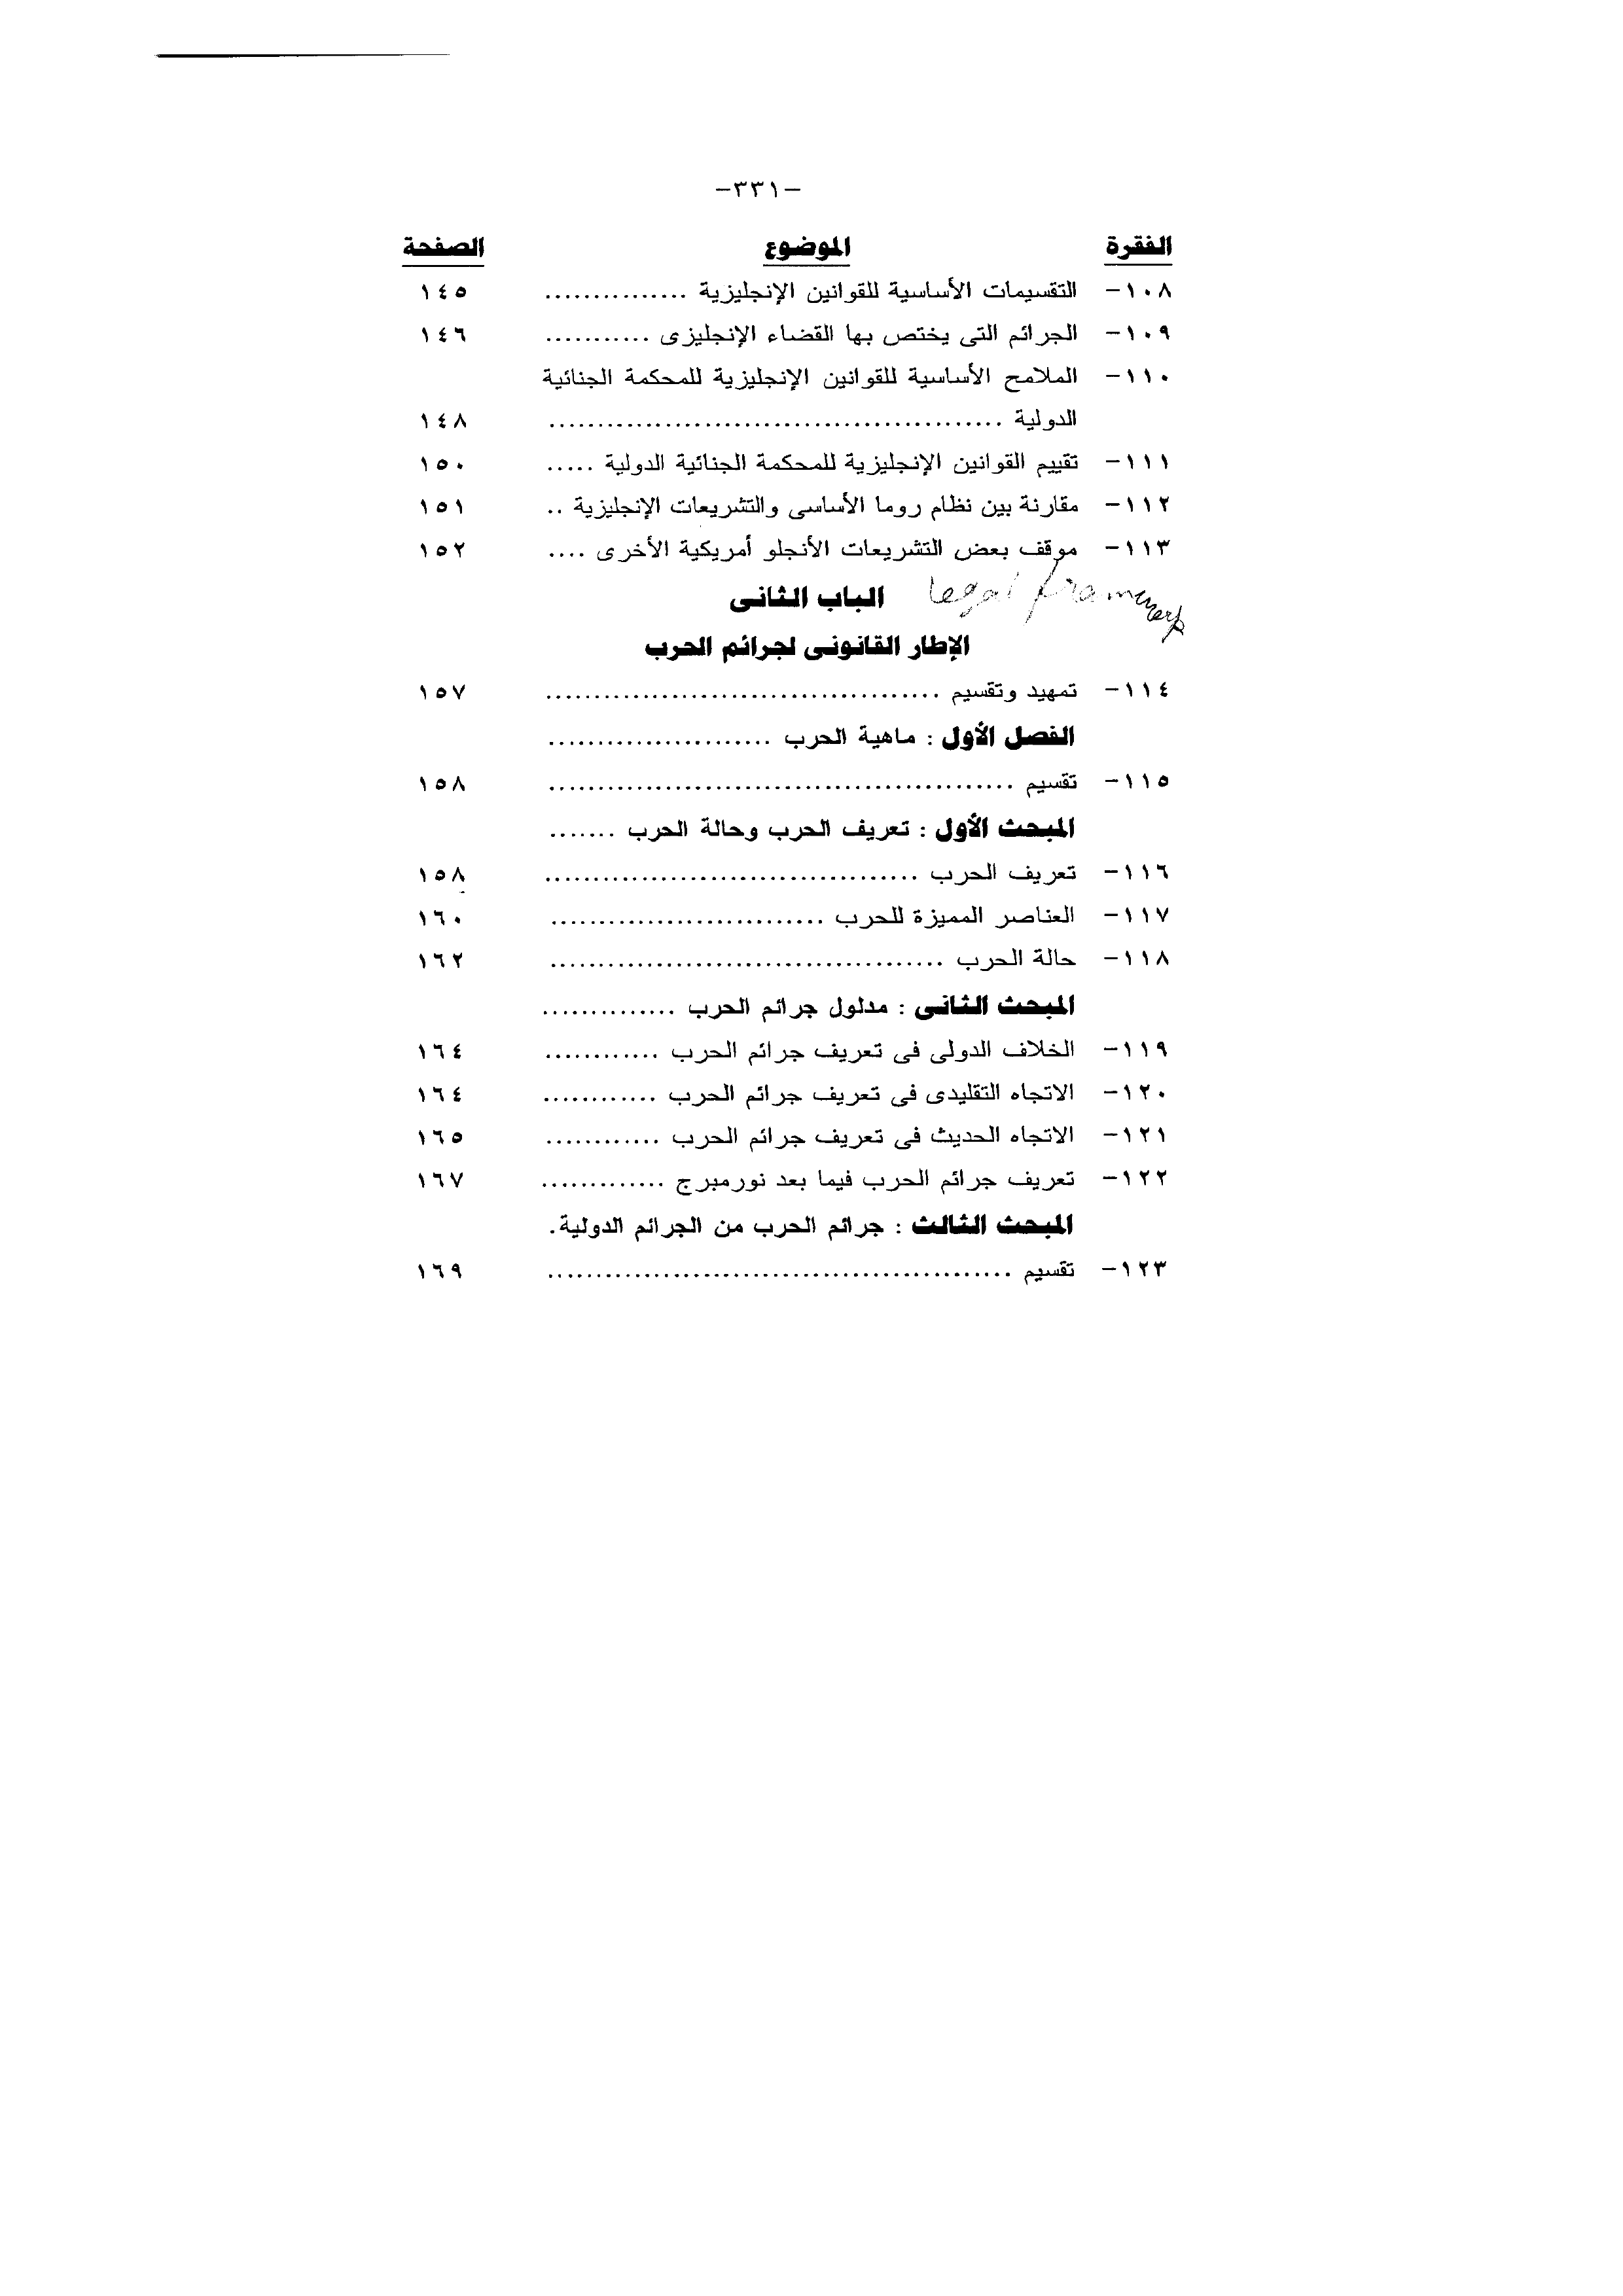 -٣٣١-
الفقرة الموضوع الصفحة
١٠٨- التقسيمات الأساسية للقوانين الإنجليزية ............... ١٤٥
١٠٩- الجرائم التى يختص بها القضاء الإنجليزى ........... ١٤٦
١١٠- الملامح الأساسية للقوانين الإنجليزية للمحكمة الجنائية
الدولية ............................................... ١٤٨
١١١- تقييم القوانين الإنجليزية للمحكمة الجنائية الدولية ..... ١٥٠
١١٢- مقارنة بين نظام روما الأساسى والتشريعات الإنجليزية .. ١٥١
١١٣- موقف بعض التشريعات الأنجلو أمريكية الأخرى .... ١٥٢
الباب الثانى legal framework
الإطار القانونى لجرائم الحرب
١١٤- تمهيد وتقسيم ........................................ ١٥٧
الفصل الأول : ماهية الحرب .......................
١١٥- تقسيم ................................................ ١٥٨
المبحث الأول : تعريف الحرب وحالة الحرب .......
١١٦- تعريف الحرب ...................................... ١٥٨
١١٧- العناصر المميزة للحرب ............................ ١٦٠
١١٨- حالة الحرب ........................................ ١٦٢
المبحث الثانى : مدلول جرائم الحرب ..............
١١٩- الخلاف الدولى فى تعريف جرائم الحرب ............ ١٦٤
١٢٠- الاتجاه التقليدى فى تعريف جرائم الحرب ............ ١٦٤
١٢١- الاتجاه الحديث فى تعريف جرائم الحرب ............ ١٦٥
١٢٢- تعريف جرائم الحرب فيما بعد نورمبرج ............. ١٦٧
المبحث الثالث : جرائم الحرب من الجرائم الدولية.
١٢٣- تقسيم ................................................ ١٦٩